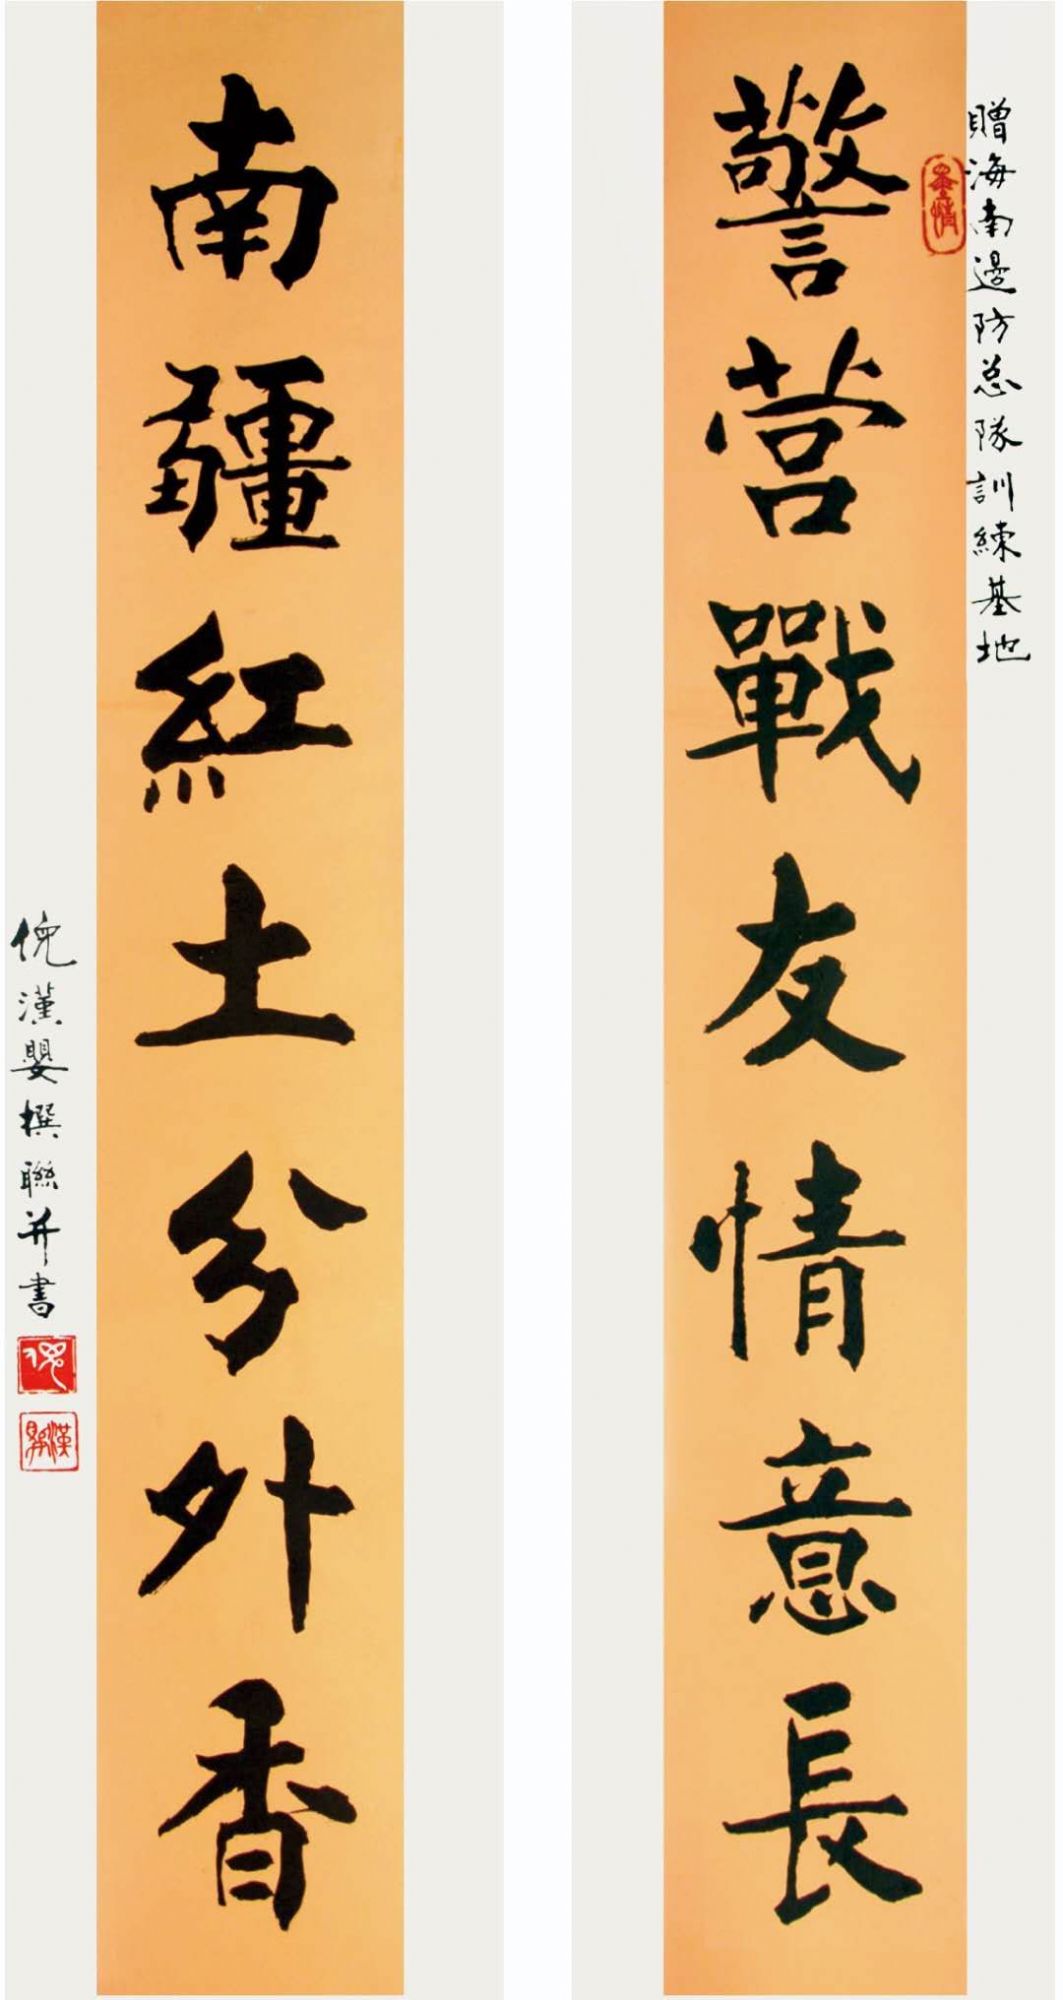 贈海南邊防总隊訓練基地
警营戰友情意長
南疆紅土分外香
倪漢嬰撰聯并書